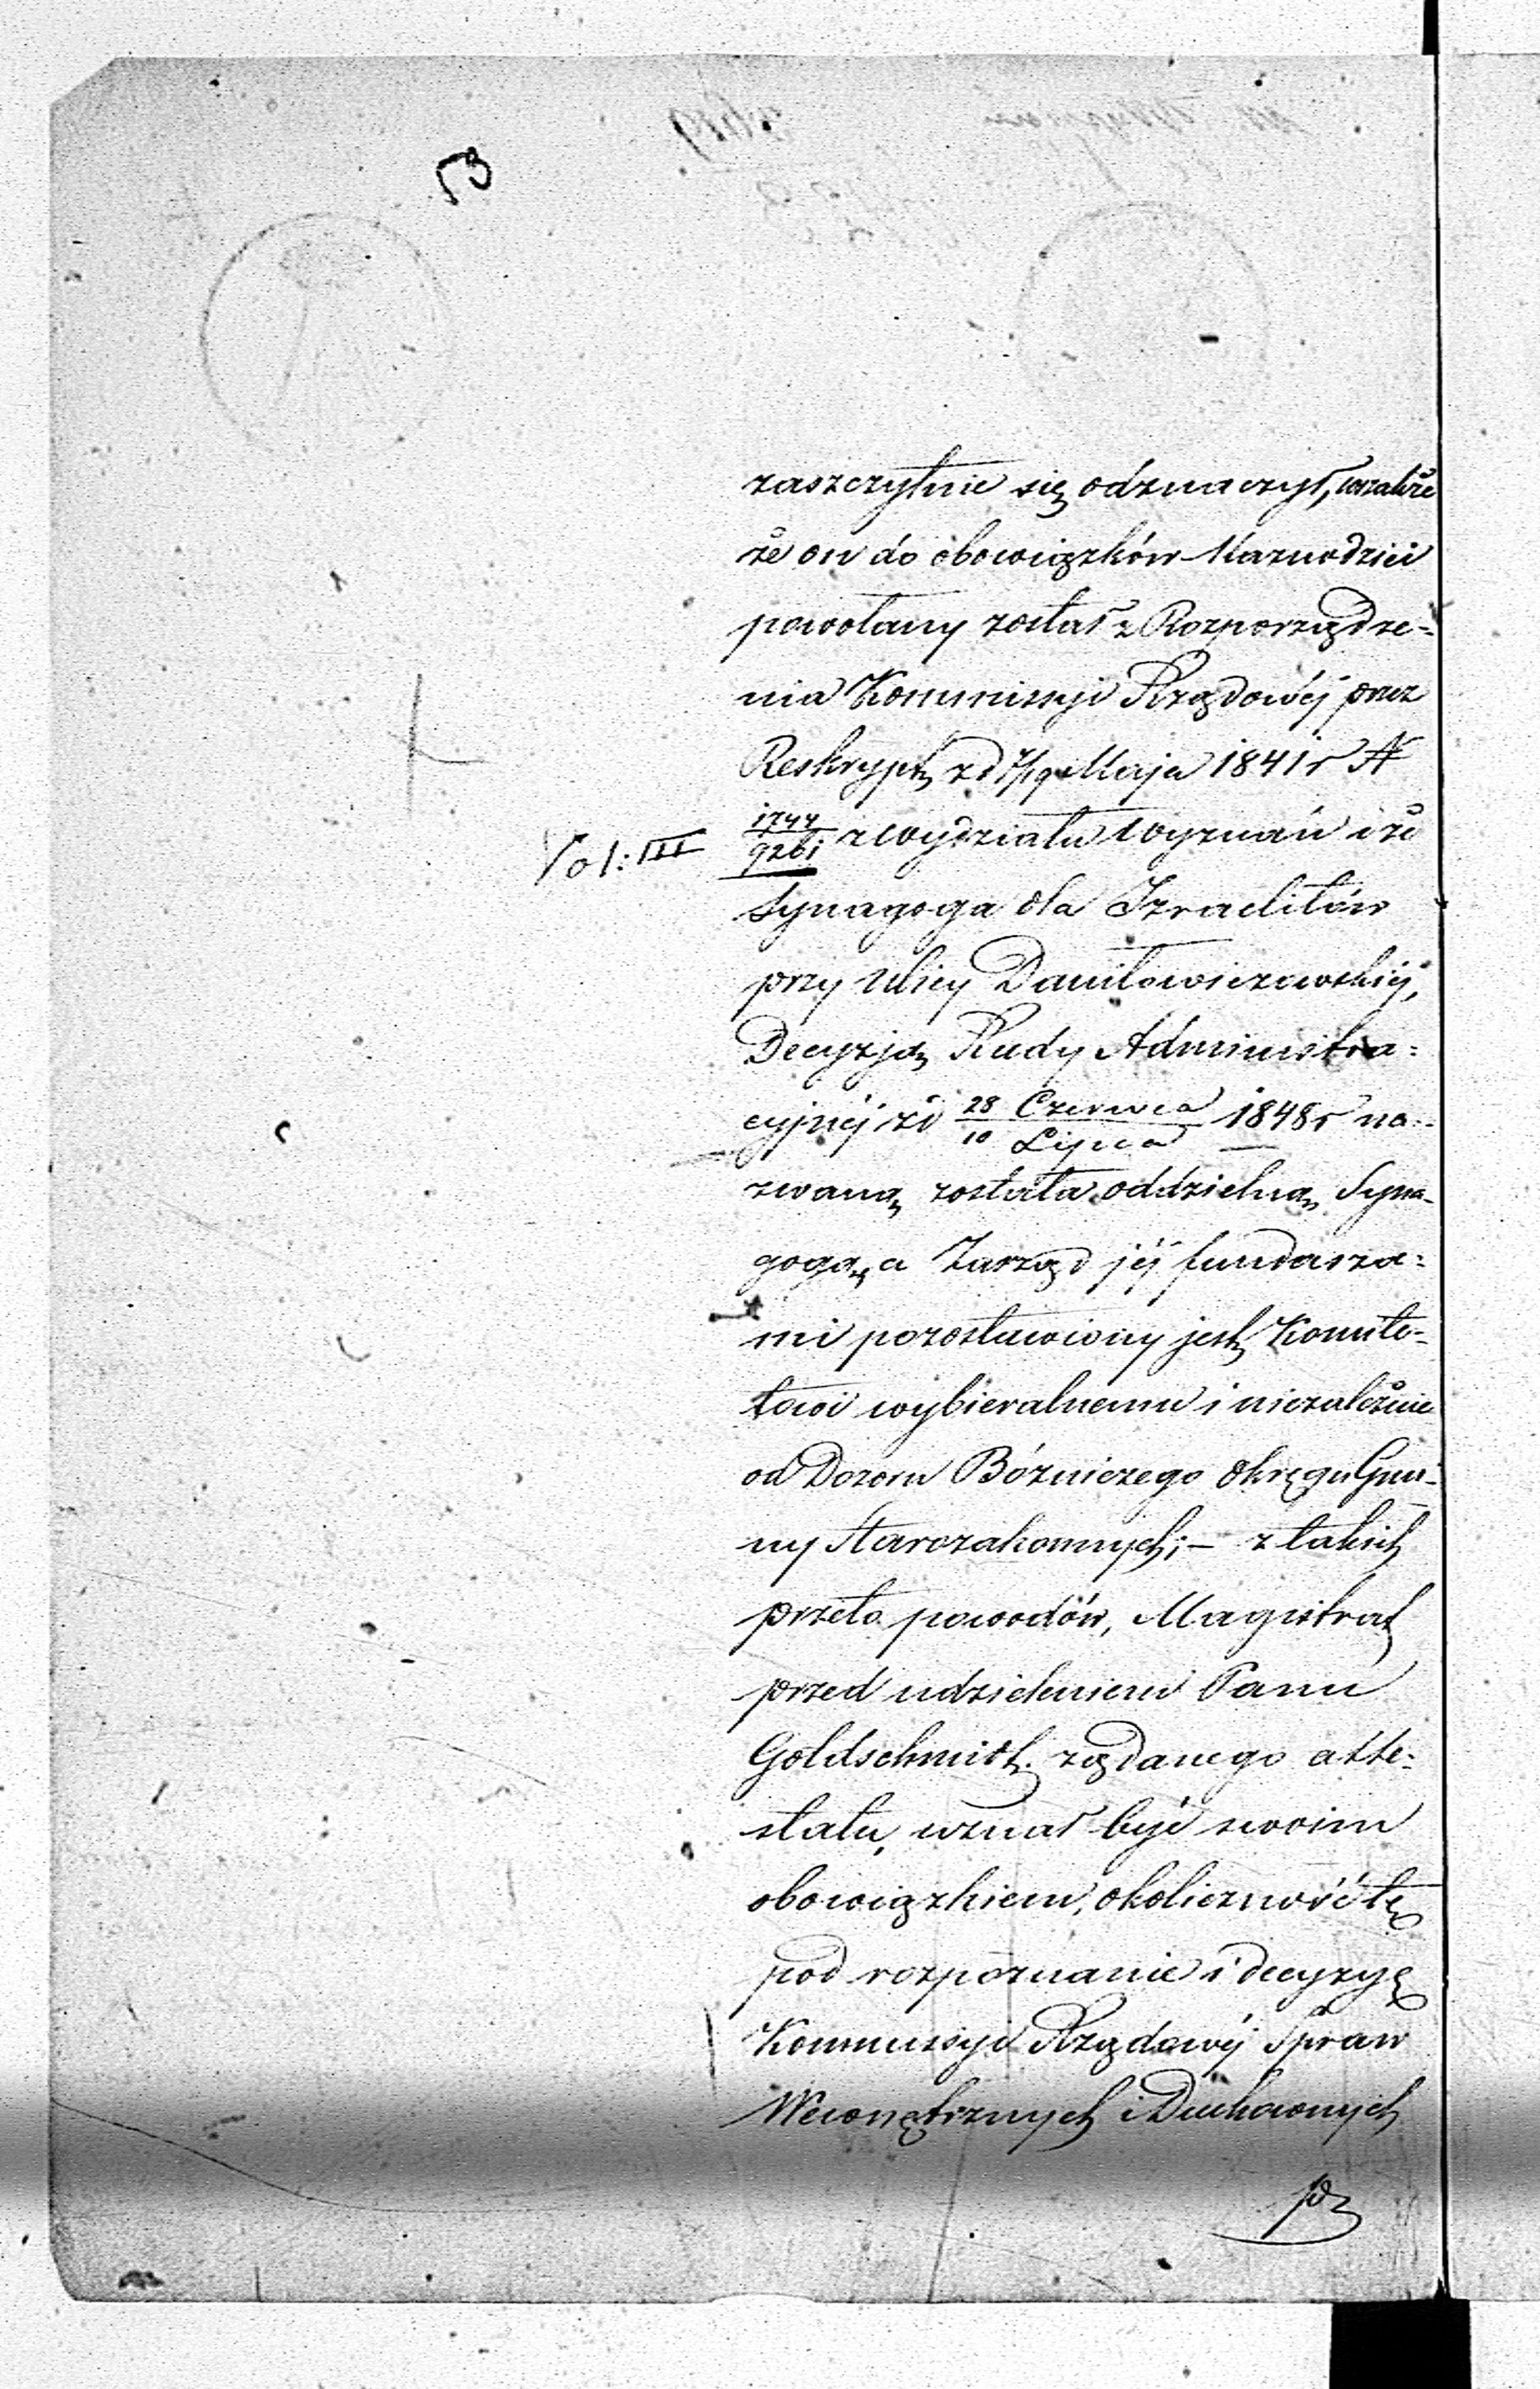 53
zaszczytnie się odznaczył, wszakże
że on do obowiązków Kaznodziei
powołany został z Rozporządze=
nia Kommissyi Rządowéj przez
Reskrypt z d 7/19 Maja 1841 r N
Vol: III
1744/9261 z wydziału Wyznań i że
Synagoga dla Izraelitów
przy ulicy Daniłowiczowskiéj,
Decyzją Rady Administra=
cyjnéj z d 28 Czerwca/10 Lipca 1848 r na=
zwaną została oddzielną Syna-
gogą, a Zarząd jéj fundusza=
mi pozostawiony jest Komite-
towi wybieralnemu i niezależnie
od Dozoru Bózniczego Okręgu Gmi-
ny Starozakonnych; – z takich
przeto powodów, Magistrat
przed udzieleniem Panu
Goldschmidt. żądanego atte-
statu, uznał być swoim
obowiązkiem, okoliczność tę
pod rozpoznanie i decyzyę
Kommissyi Rządowéj Spraw
Wewnętrznych i Duchownych